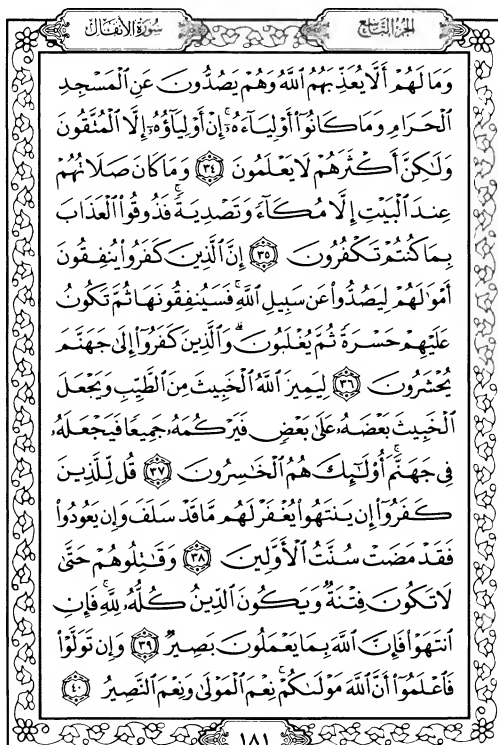 الجزء التاسع
سورة الأنفال
وَمَا لَهُمْ أَلَّا يُعَذِّبَهُمُ اللَّهُ وَهُمْ يَصُدُّونَ عَنِ الْمَسْجِدِ
الْحَرَامِ وَمَا كَانُوٓا۟ أَوْلِيَآءَهُۥٓ ۚ إِنْ أَوْلِيَآؤُهُۥٓ إِلَّا الْمُتَّقُونَ
وَلَٰكِنَّ أَكْثَرَهُمْ لَا يَعْلَمُونَ ٣٤ وَمَا كَانَ صَلَاتُهُمْ
عِندَ الْبَيْتِ إِلَّا مُكَآءً وَتَصْدِيَةً ۚ فَذُوقُوا۟ الْعَذَابَ
بِمَا كُنتُمْ تَكْفُرُونَ ٣٥ إِنَّ الَّذِينَ كَفَرُوا۟ يُنفِقُونَ
أَمْوَٰلَهُمْ لِيَصُدُّوا۟ عَن سَبِيلِ اللَّهِ ۚ فَسَيُنفِقُونَهَا ثُمَّ تَكُونُ
عَلَيْهِمْ حَسْرَةً ثُمَّ يُغْلَبُونَ ۗ وَالَّذِينَ كَفَرُوٓا۟ إِلَىٰ جَهَنَّمَ
يُحْشَرُونَ ٣٦ لِيَمِيزَ اللَّهُ الْخَبِيثَ مِنَ الطَّيِّبِ وَيَجْعَلَ
الْخَبِيثَ بَعْضَهُۥ عَلَىٰ بَعْضٍ فَيَرْكُمَهُۥ جَمِيعًا فَيَجْعَلَهُۥ
فِى جَهَنَّمَ ۚ أُو۟لَٰٓئِكَ هُمُ الْخَٰسِرُونَ ٣٧ قُل لِّلَّذِينَ
كَفَرُوٓا۟ إِن يَنتَهُوا۟ يُغْفَرْ لَهُم مَّا قَدْ سَلَفَ وَإِن يَعُودُوا۟
فَقَدْ مَضَتْ سُنَّتُ الْأَوَّلِينَ ٣٨ وَقَٰتِلُوهُمْ حَتَّىٰ
لَا تَكُونَ فِتْنَةٌ وَيَكُونَ الدِّينُ كُلُّهُۥ لِلَّهِ ۚ فَإِنِ
انتَهَوْا۟ فَإِنَّ اللَّهَ بِمَا يَعْمَلُونَ بَصِيرٌ ٣٩ وَإِن تَوَلَّوْا۟
فَاعْلَمُوٓا۟ أَنَّ اللَّهَ مَوْلَىٰكُمْ ۚ نِعْمَ الْمَوْلَىٰ وَنِعْمَ النَّصِيرُ ٤٠
١٨١